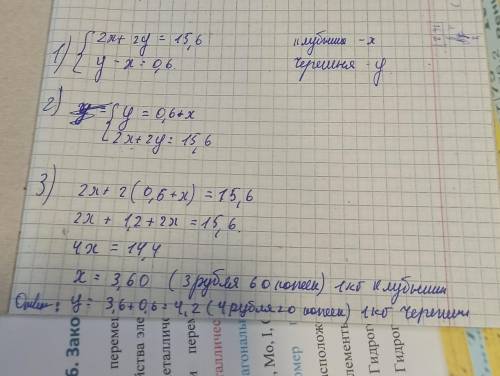 1) { 2x + 2y = 15,6 клубника - x
y - x = 0,6. черешня - y
2) { y = 0,6 + x
2x + 2y = 15,6
3) 2x + 2(0,6 + x) = 15,6
2x + 1,2 + 2x = 15,6.
4x = 14,4
x = 3,60 (3 рубля 60 копеек) 1 кг клубники
Ответ: y = 3,6 + 0,6 = 4,2 (4 рубля 20 копеек) 1 кг черешни
6. Зако
перемен
йства эле
еталличес
и перем
металлическ
Mo, I,
номер
сположе
элементы
Гидрог
Гидрог